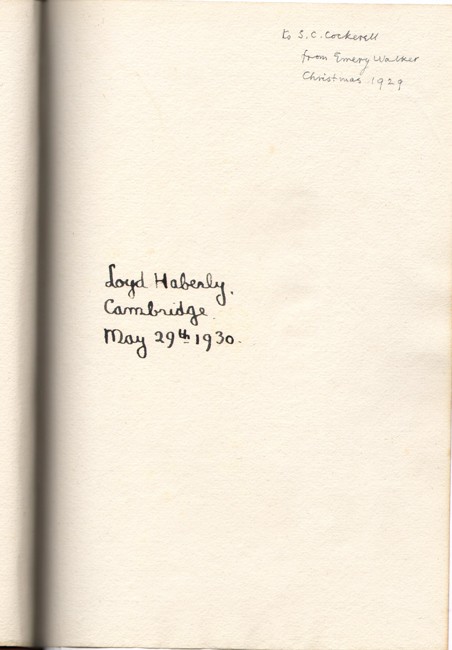 to S.C. Cockerell
from Emery Walker
Christmas 1929
Loyd Haberly.
Cambridge.
May 29th 1930.